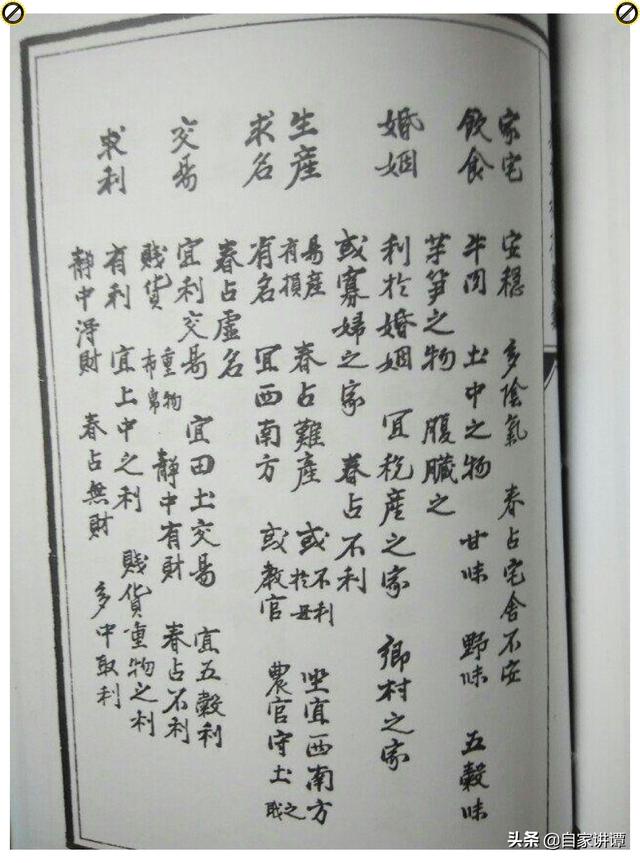 家宅 安穩 多陰氣 春占宅舍不安
飲食 牛肉 土中之物 甘味 野味 五穀味
芋笋之物 腹臟之
婚姻 利於婚姻 宜稅產之家 鄉村之家
或寡婦之家 春占不利
生産 易産 春占難産 或不利於母 坐宜西南方
有損
求名 有名 宜西南方 或教官 農官守土之職
春占虛名
交易 宜利交易 宜田土交易 宜五穀利
賤貨 重物布帛 静中有財 春占不利
求利 有利 宜土中之利 賤貨重物之利
静中得財 春占無財 多中取利
头条 @自家讲谭